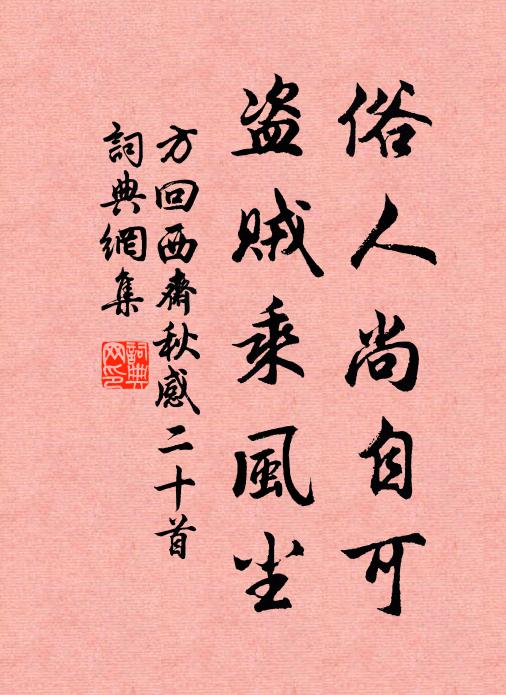 俗人尚自可
盗贼乘風尘
方回西齋秋感二十首
詞典網集
詞典网印